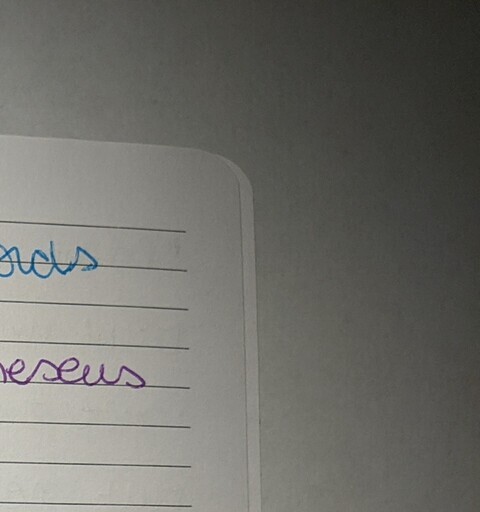 ords
eseus